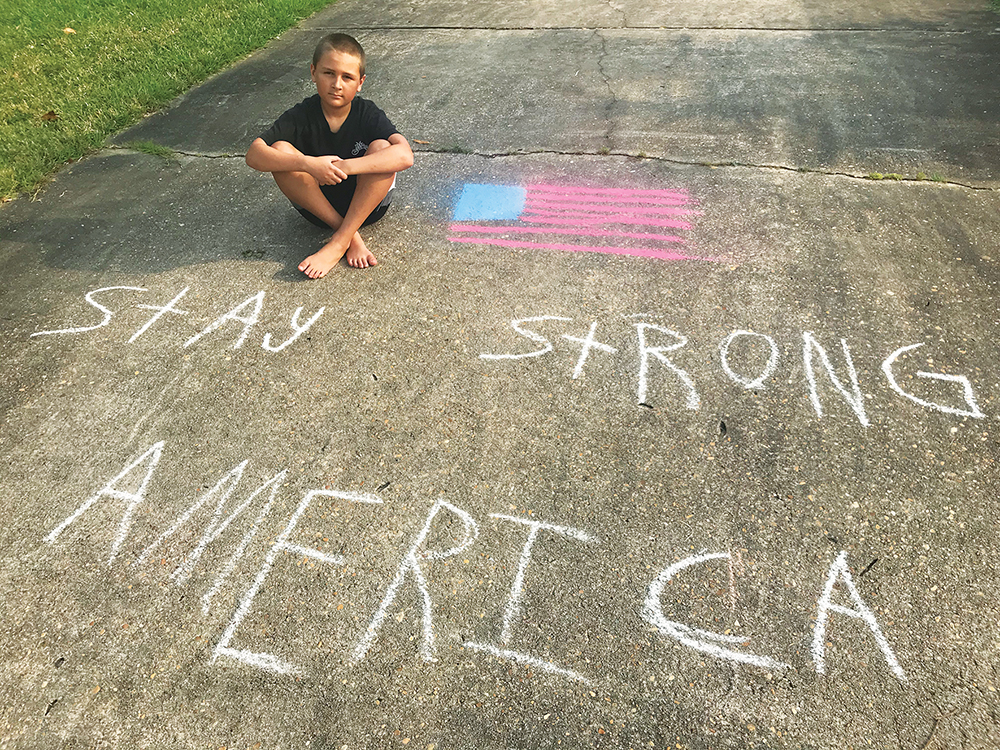 StAy StRONG
AMERICA